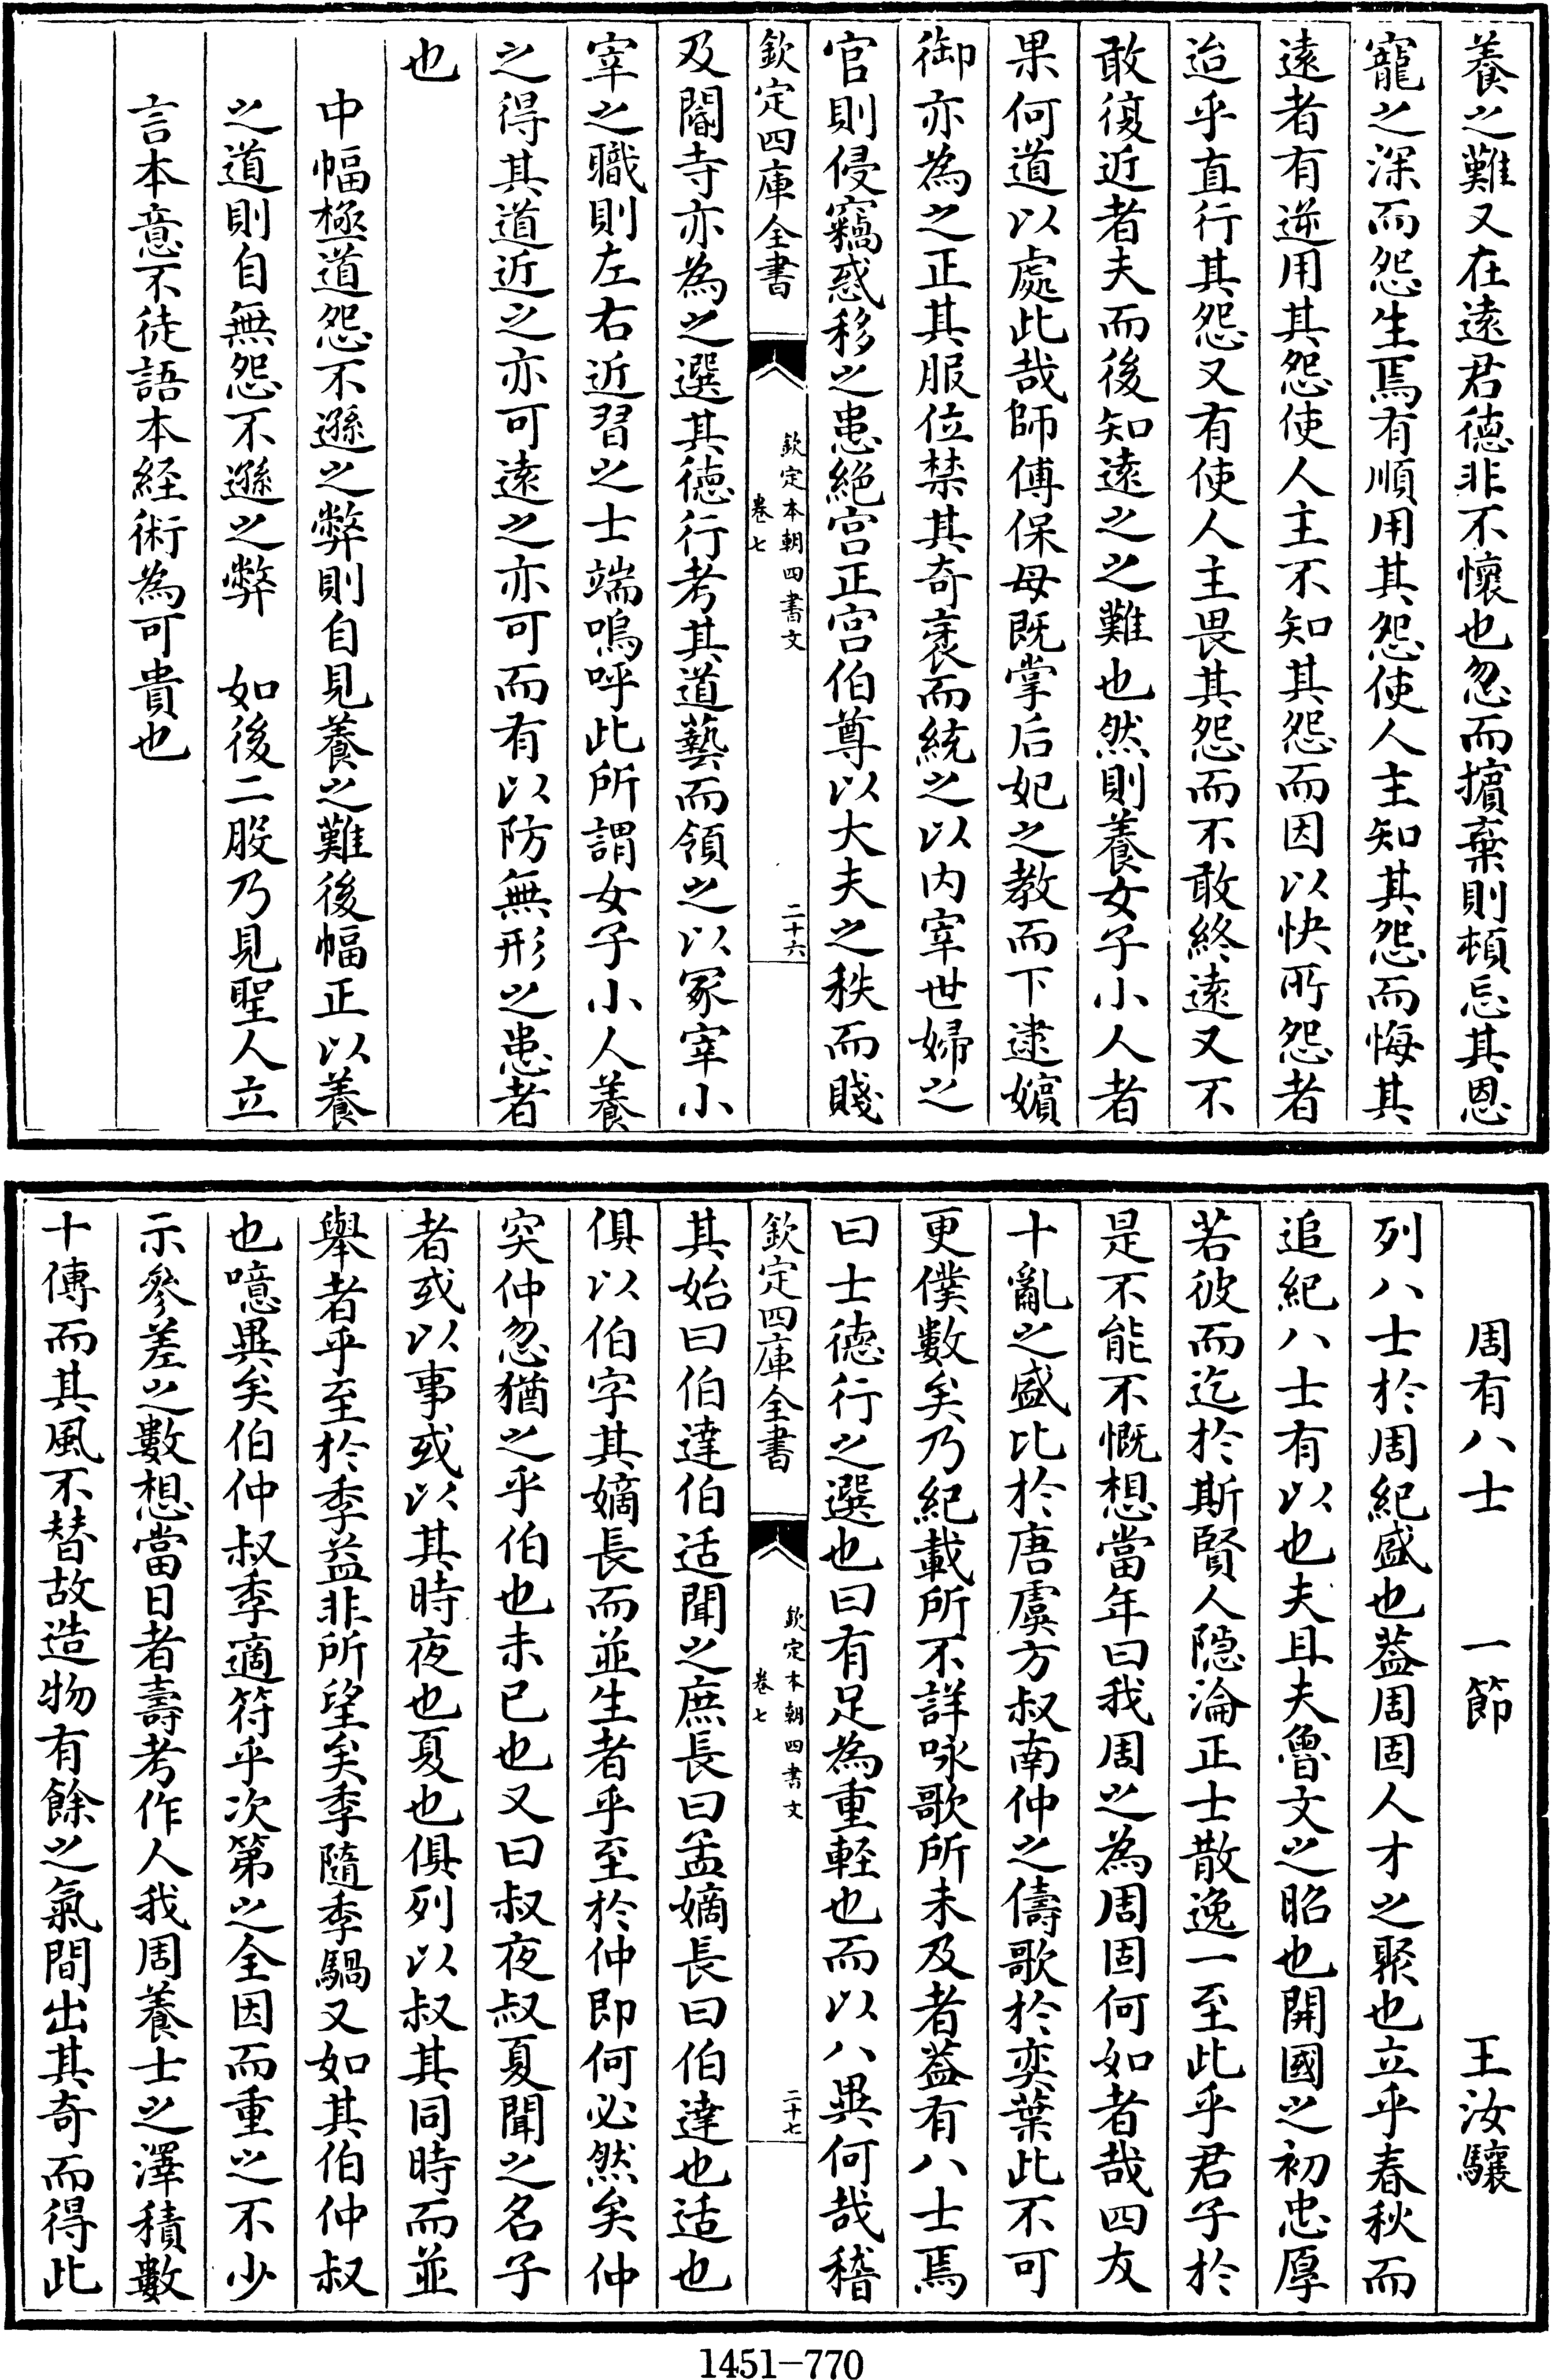 養之難又在遠君德非不懷也忽而擯棄則頓忘其恩
寵之深而怨生焉有順用其怨使人主知其怨而悔其
遠者有逆用其怨使人主不知其怨而因以快所怨者
迨乎直行其怨又有使人主畏其怨而不敢終遠又不
敢復近者夫而後知遠之之難也然則養女子小人者
果何道以處此哉師傅保母既掌后妃之教而下逮嬪
御亦為之正其服位禁其奇衺而統之以内宰世婦之
官則侵竊惑移之患絶宫正宫伯尊以大夫之秩而賤
欽定四庫全書
欽定本朝四書文
卷七
二十六
及閽寺亦為之選其徳行考其道藝而領之以冢宰小
宰之職則左右近習之士端嗚呼此所謂女子小人養
之得其道近之亦可遠之亦可而有以防無形之患者
也
中幅極道怨不遜之弊則自見養之難後幅正以養
之道則自無怨不遜之弊　如後二股乃見聖人立
言本意不徒語本經術為可貴也
周有八士　一節　王汝驤
列八士於周紀盛也葢周固人才之聚也立乎春秋而
追紀八士有以也夫且夫魯文之昭也開國之初忠厚
若彼而迄於斯賢人隐淪正士散逸一至此乎君子於
是不能不慨想當年曰我周之為周固何如者哉四友
十亂之盛比於唐虞方叔南仲之儔歌於奕葉此不可
更僕數矣乃紀載所不詳咏歌所未及者葢有八士焉
曰士德行之選也曰有足為重輕也而以八異何哉稽
欽定四庫全書
欽定本朝四書文
卷七
二十七
其始曰伯達伯适聞之庶長曰孟嫡長曰伯達也适也
俱以伯字其嫡長而並生者乎至於仲即何必然矣仲
突仲忽猶之乎伯也未已也又曰叔夜叔夏聞之名子
者或以事或以其時夜也夏也俱列以叔其同時而並
舉者乎至於季益非所望矣季隨季騧又如其伯仲叔
也噫異矣伯仲叔季適符乎次第之全因而重之不少
示參差之數想當日者壽考作人我周養士之澤積數
十傳而其風不替故造物有餘之氣間出其奇而得此
1451-770